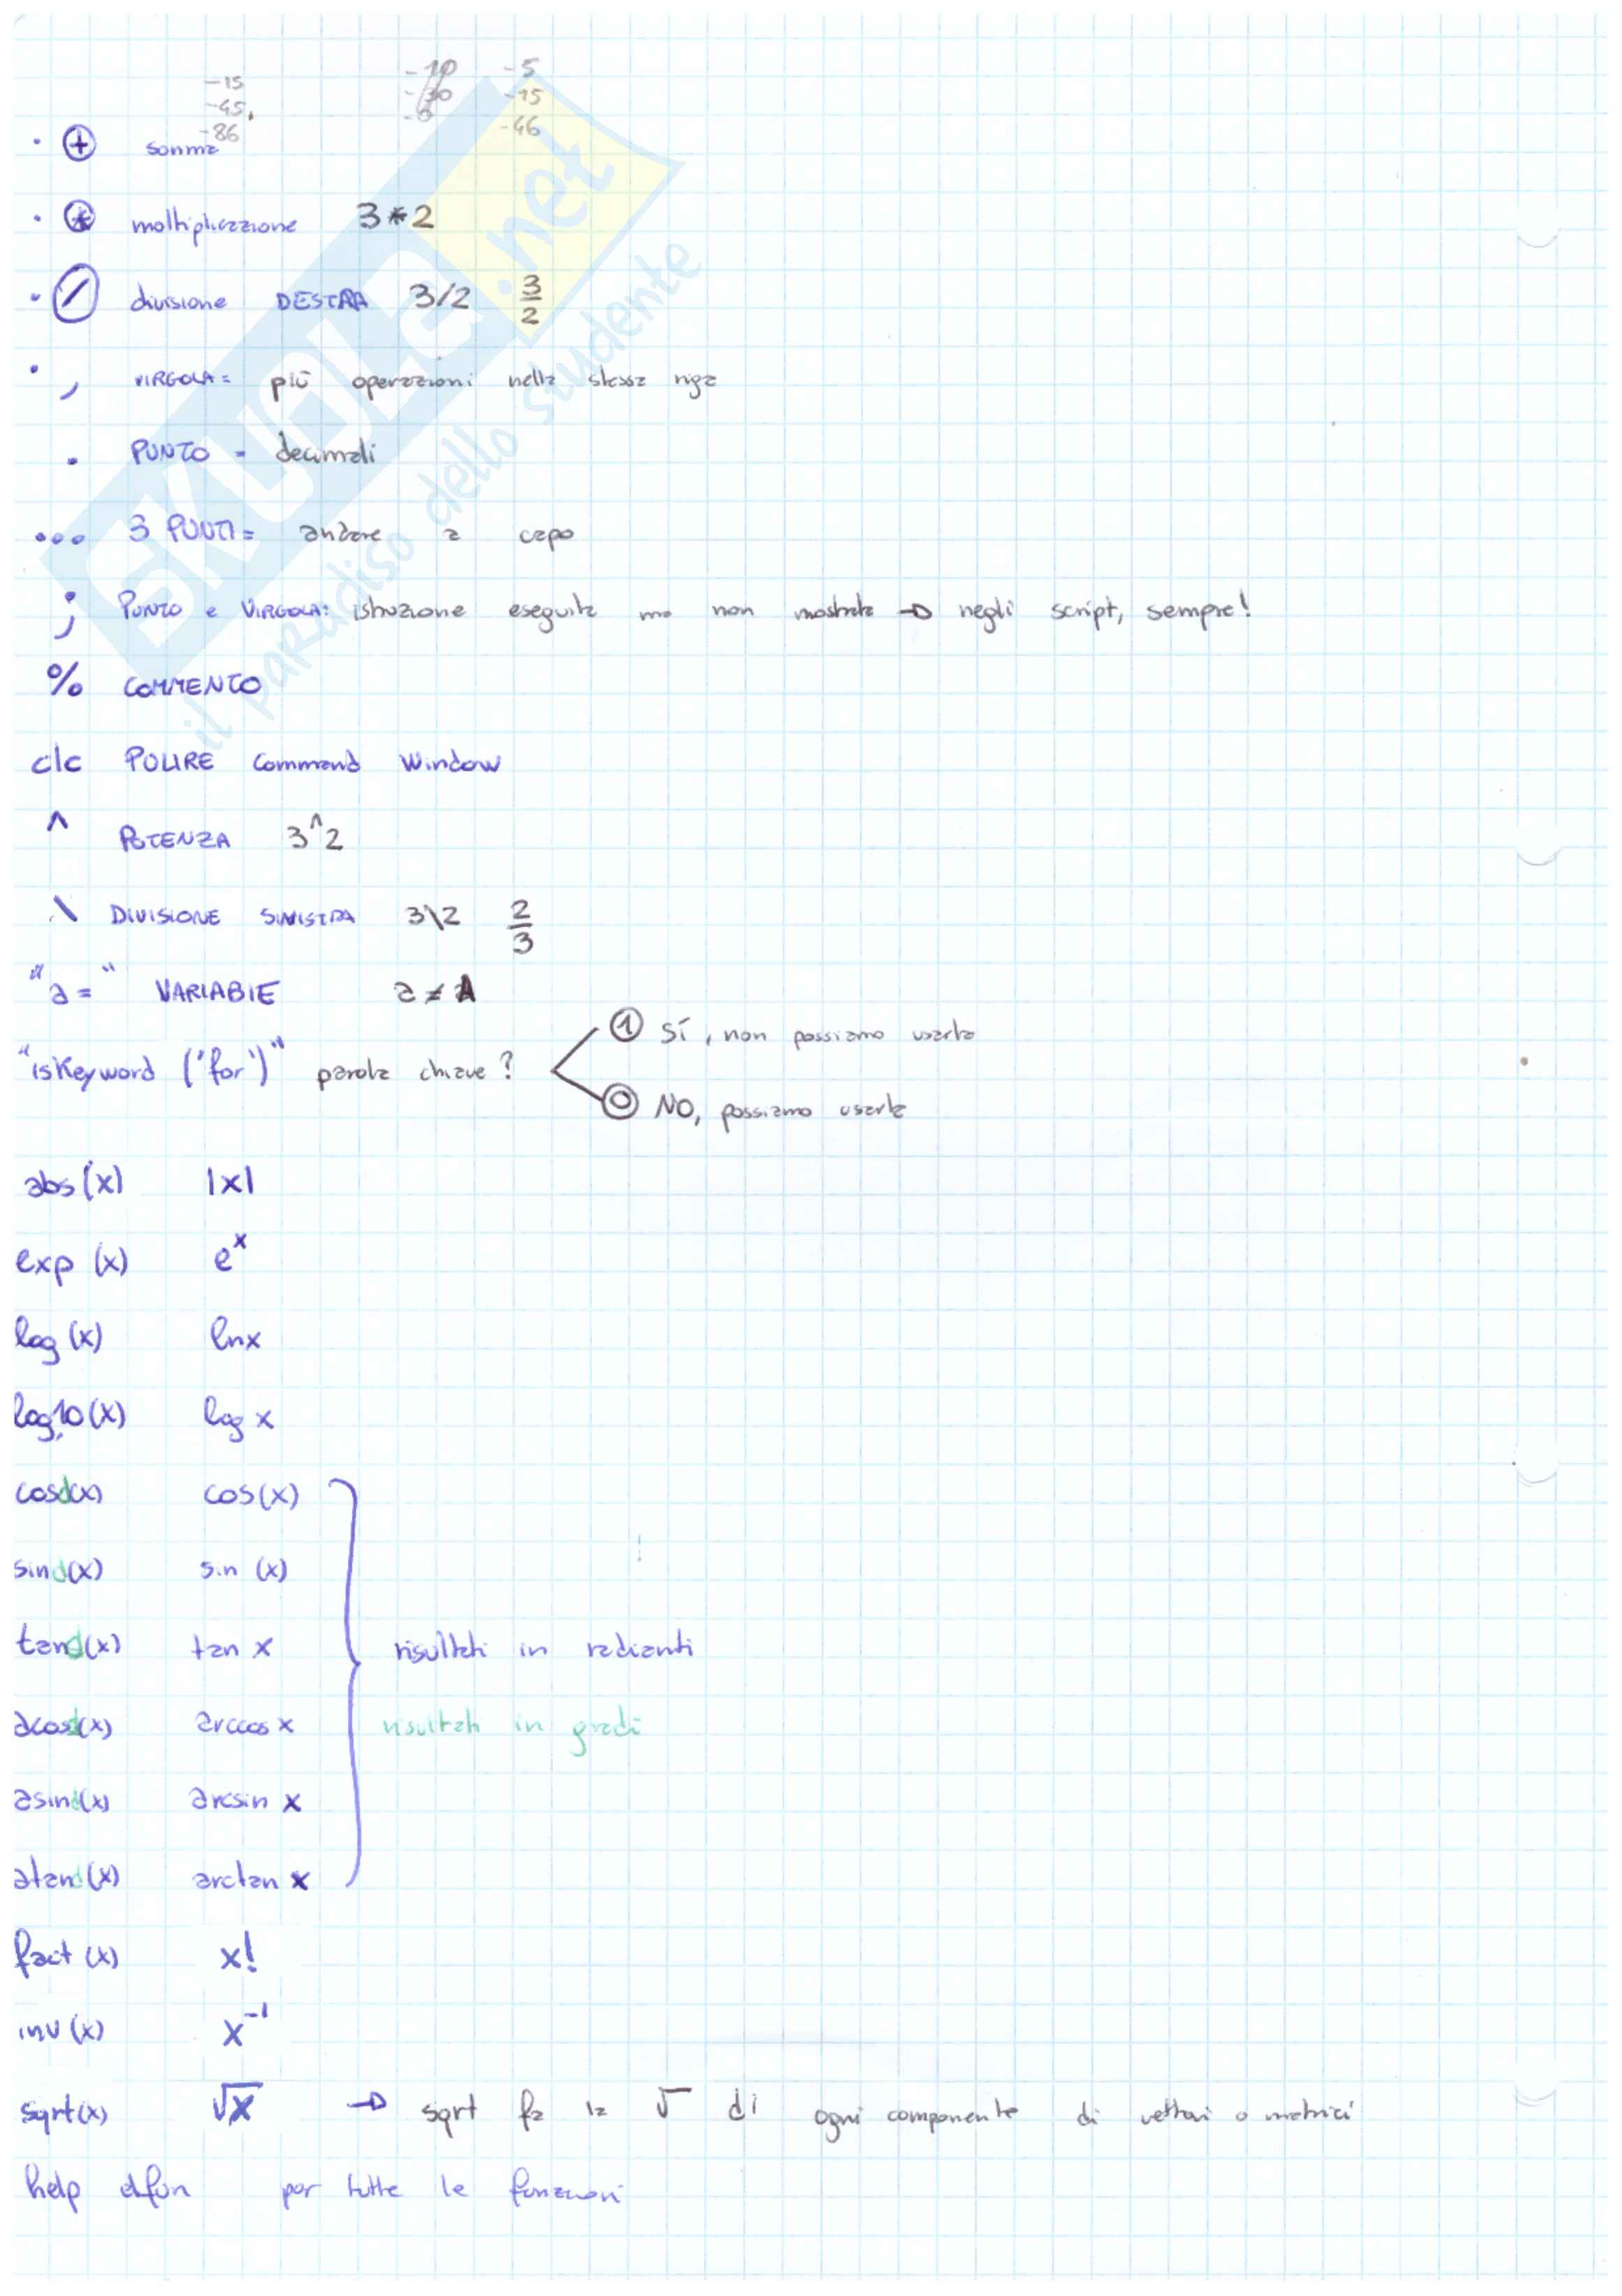 -15 -10 -5
-45, -30 -15
-86 -46
· + somma
· * moltiplicazione 3*2
· / divisione DESTRA 3/2 3/2
· , VIRGOLA = più operazioni nella stessa riga
. PUNTO = decimali
... 3 PUNTI = andare a capo
; PUNTO e VIRGOLA: istruzione eseguita ma non mostrata → negli script, sempre!
% COMMENTO
clc PULIRE Command Window
^ POTENZA 3^2
\ DIVISIONE SINISTRA 3\2 2/3
"a = " VARIABIE a ≠ A
① Sí, non possiamo usarla
"isKeyword ('for')" parola chiave?
⓪ NO, possiamo usarla
abs(x) |x|
exp (x) e^x
log (x) ln x
log10(x) log x
cosd(x) cos(x)
sind(x) sin (x)
tand(x) tan x risultati in radianti
acosd(x) arccos x risultati in gradi
asind(x) arcsin x
atand(x) arctan x
fact (x) x!
inv (x) x^-1
sqrt(x) √x → sqrt fa la √ di ogni componente di vettori o matrici
help elfun per tutte le funzioni
SKUOLA.net
il paradiso dello studente